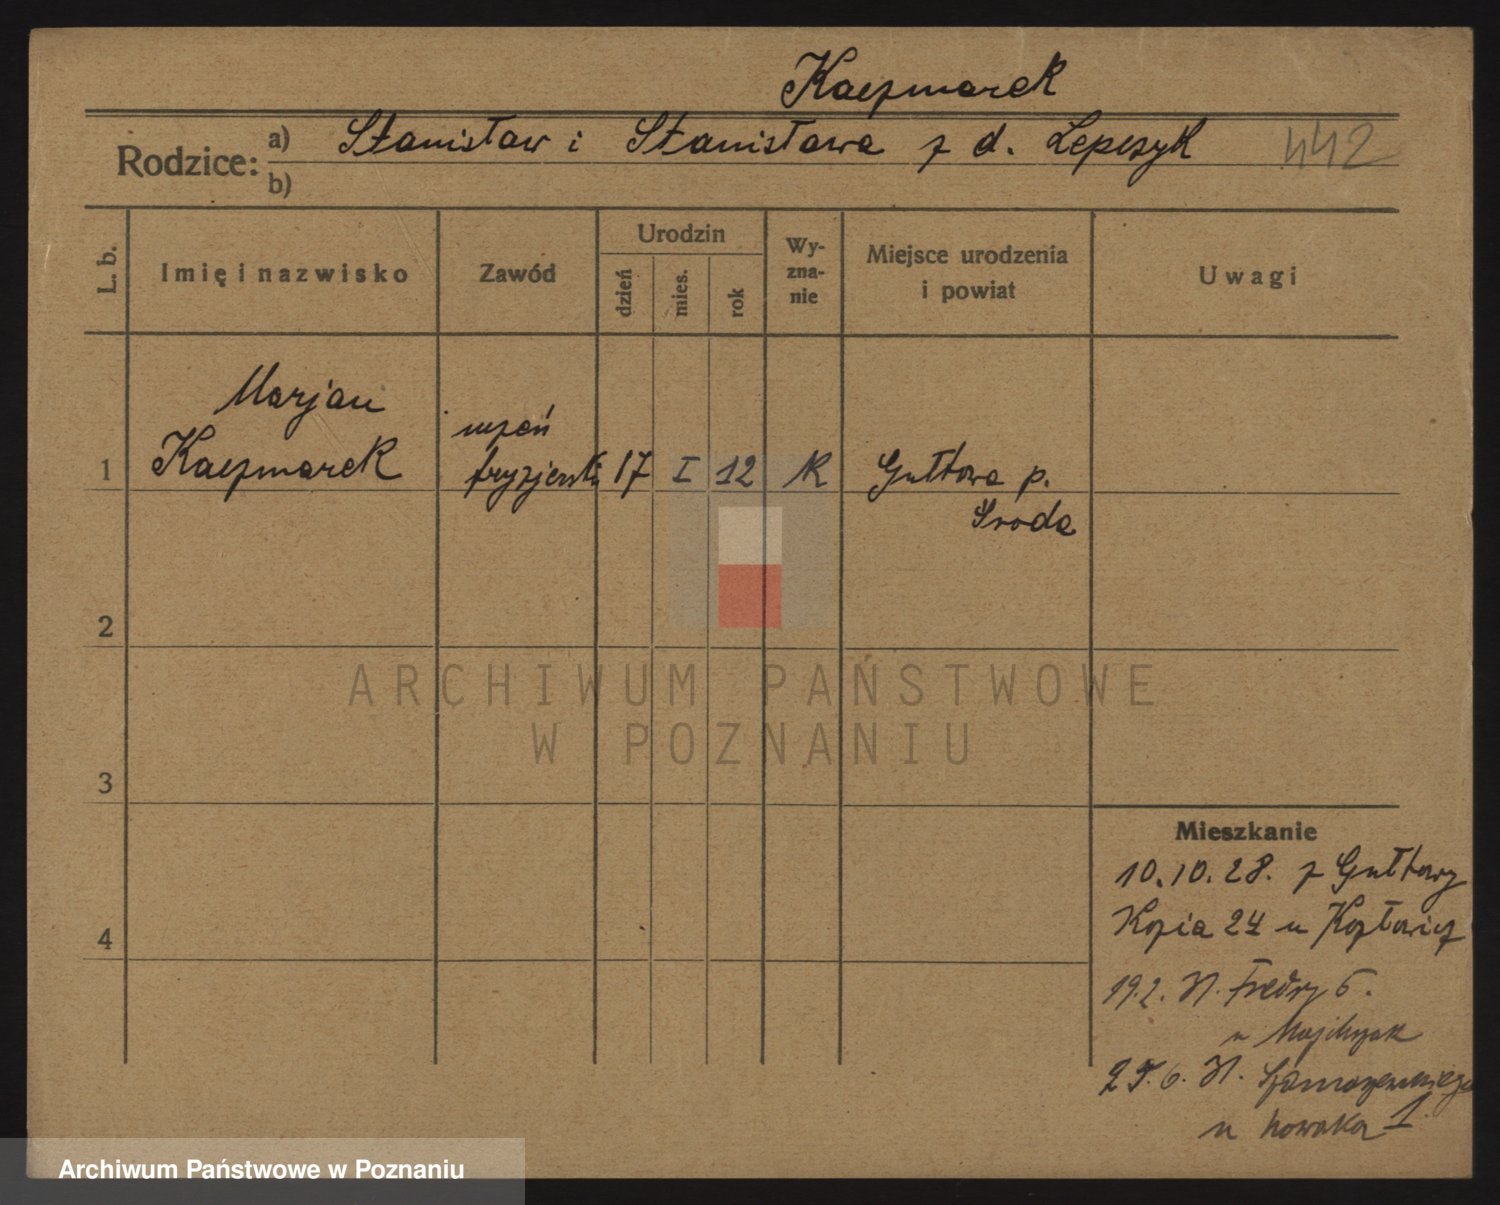 Kaczmarek
Rodzice: a) Stanisław i Stanisława z d. Lepczyk 442
b)
L. b. Imię i nazwisko Zawód Urodzin dzień mies. rok Wy-zna-nie Miejsce urodzenia i powiat Uwagi
Marjan
uczeń
1 Kaczmarek fryzjerski 17 I 12 K Gułtowa p.
Sroda
2
ARCHIWUM PAŃSTWOWE
W POZNANIU
3
Mieszkanie
10.10.28. z Gułtowy
4
24 u
19.2. Fredry 6.
u Majchrzak
u Nowaka 1
Archiwum Państwowe w Poznaniu